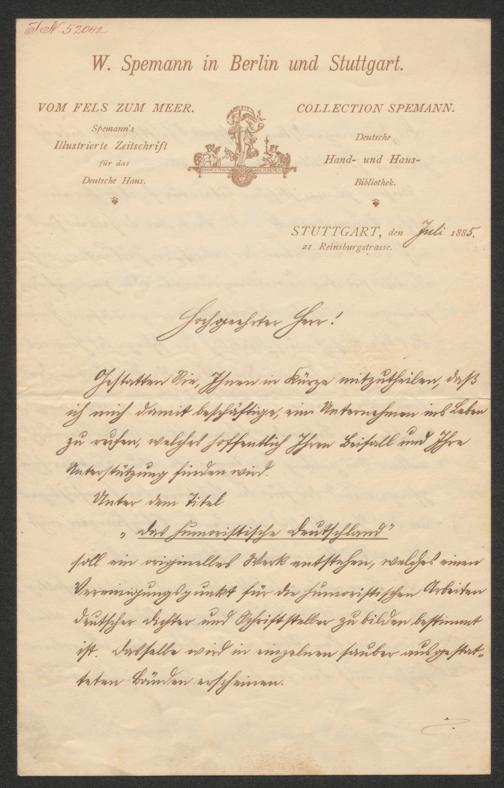 I.N. 52042
W. Spemann in Berlin und Stuttgart.
VOM FELS ZUM MEER.
Spemann's
Illustrierte Zeitschrift
für das
Deutsche Haus.
COLLECTION SPEMANN.
Deutsche
Hand- und Haus-
Bibliothek.
STUTTGART, den Juli 1885.
21 Reinsburgstrasse.
Hochgeehrter Herr!
Gestatten Sie, Ihnen in Kürze mitzutheilen, daß
ich mich damit beschäftige, ein Unternehmen ins Leben
zu rufen, welches hoffentlich Ihren Beifall und Ihre
Unterstützung finden wird.
Unter dem Titel
„das humoristische Deutschland"
soll ein originelles Werk entstehen, welches einen
Vereinigungspunkt für die humoristischen Arbeiten
deutscher Dichter und Schriftsteller zu bilden bestimmt
ist. Dasselbe wird in einzelnen sauber ausgestat-
teten Bänden erscheinen.